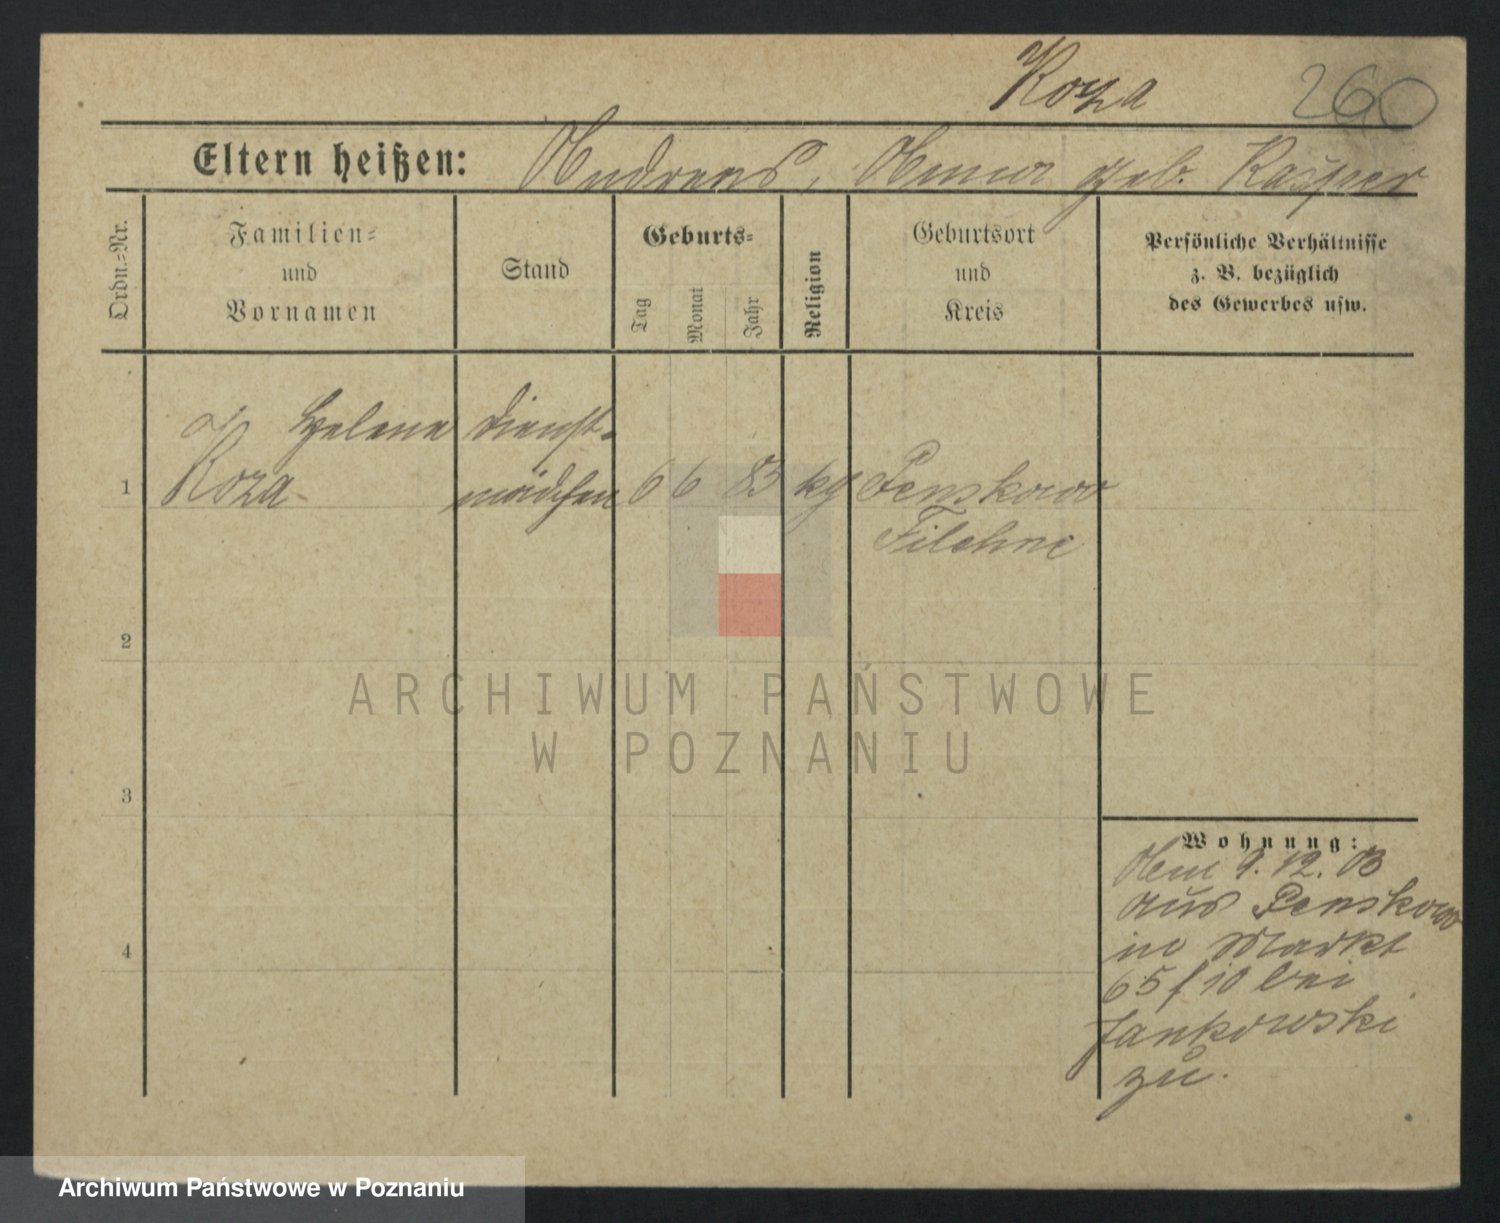 Koza 260
Eltern heißen: Andreas, Anna geb. Kasper
Ordn.-Nr.
Familien-
und
Vornamen
Stand
Geburts-
Tag
Monat
Jahr
Religion
Geburtsort
und
Kreis
Persönliche Verhältnisse
z. B. bezüglich
des Gewerbes usw.
Helene Dienst-
1 Koza mädchen 6 6 83 kg Penskowo
Filehne
2
3
4
Wohnung:
Am 9. 12. 03
aus Penskowo
in Markt
65 f 10 bei
Jankowski
zu.
ARCHIWUM PAŃSTWOWE
W POZNANIU
Archiwum Państwowe w Poznaniu